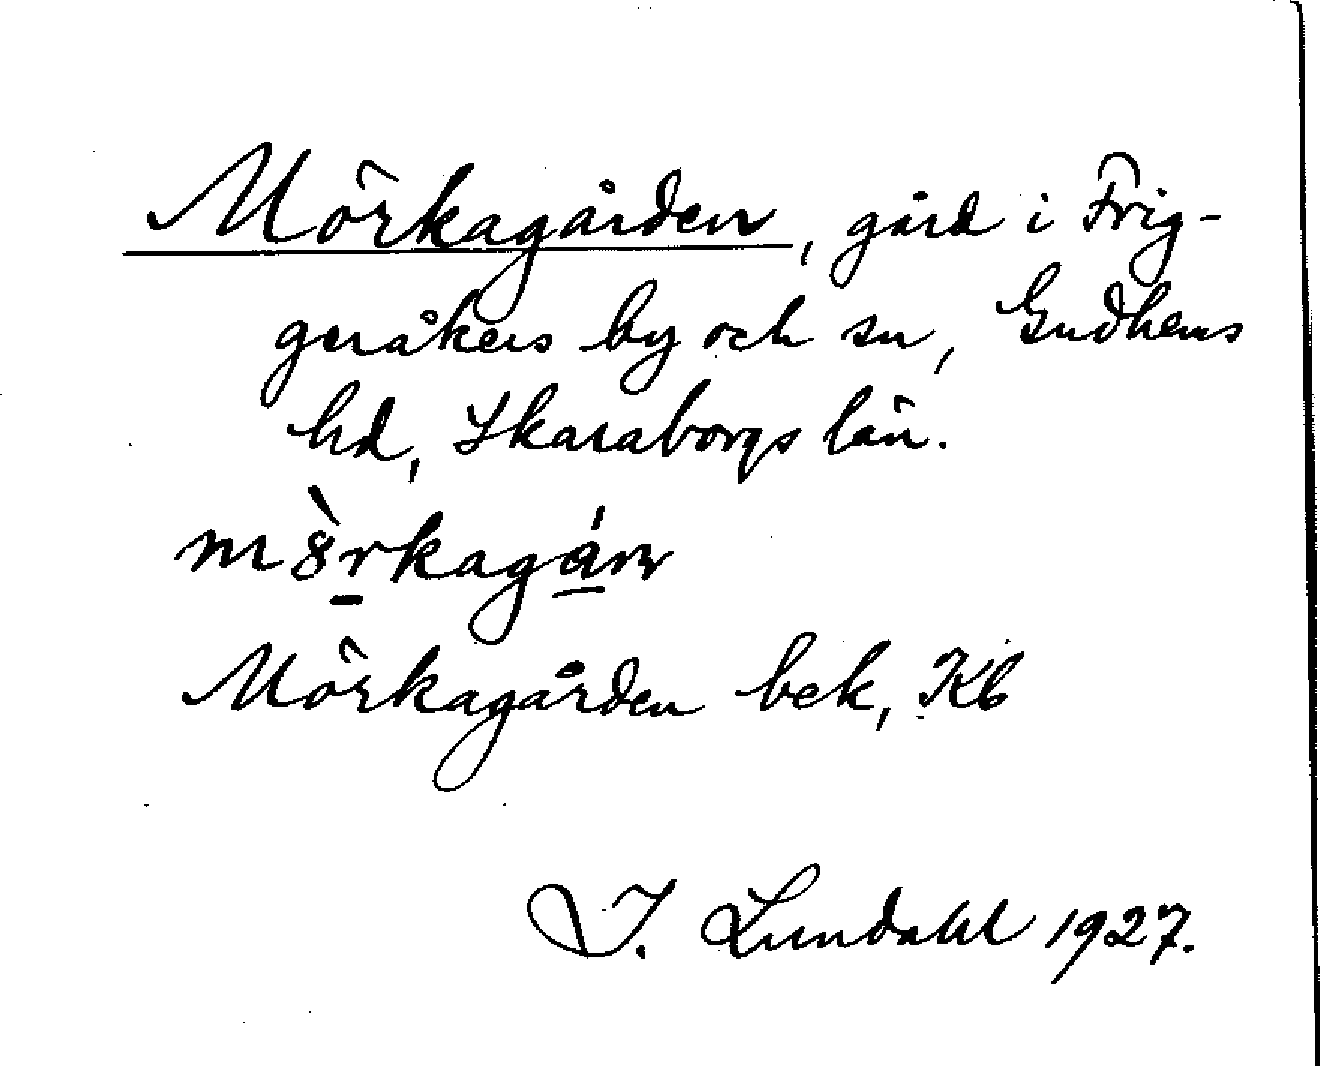 Mörkagården, gård i Frig-
geråkers by och sn, Gudhems
hd, Skaraborgs län.
m8̀rkagán
Mörkagården bek, Kb
I. Lundahl 1927.